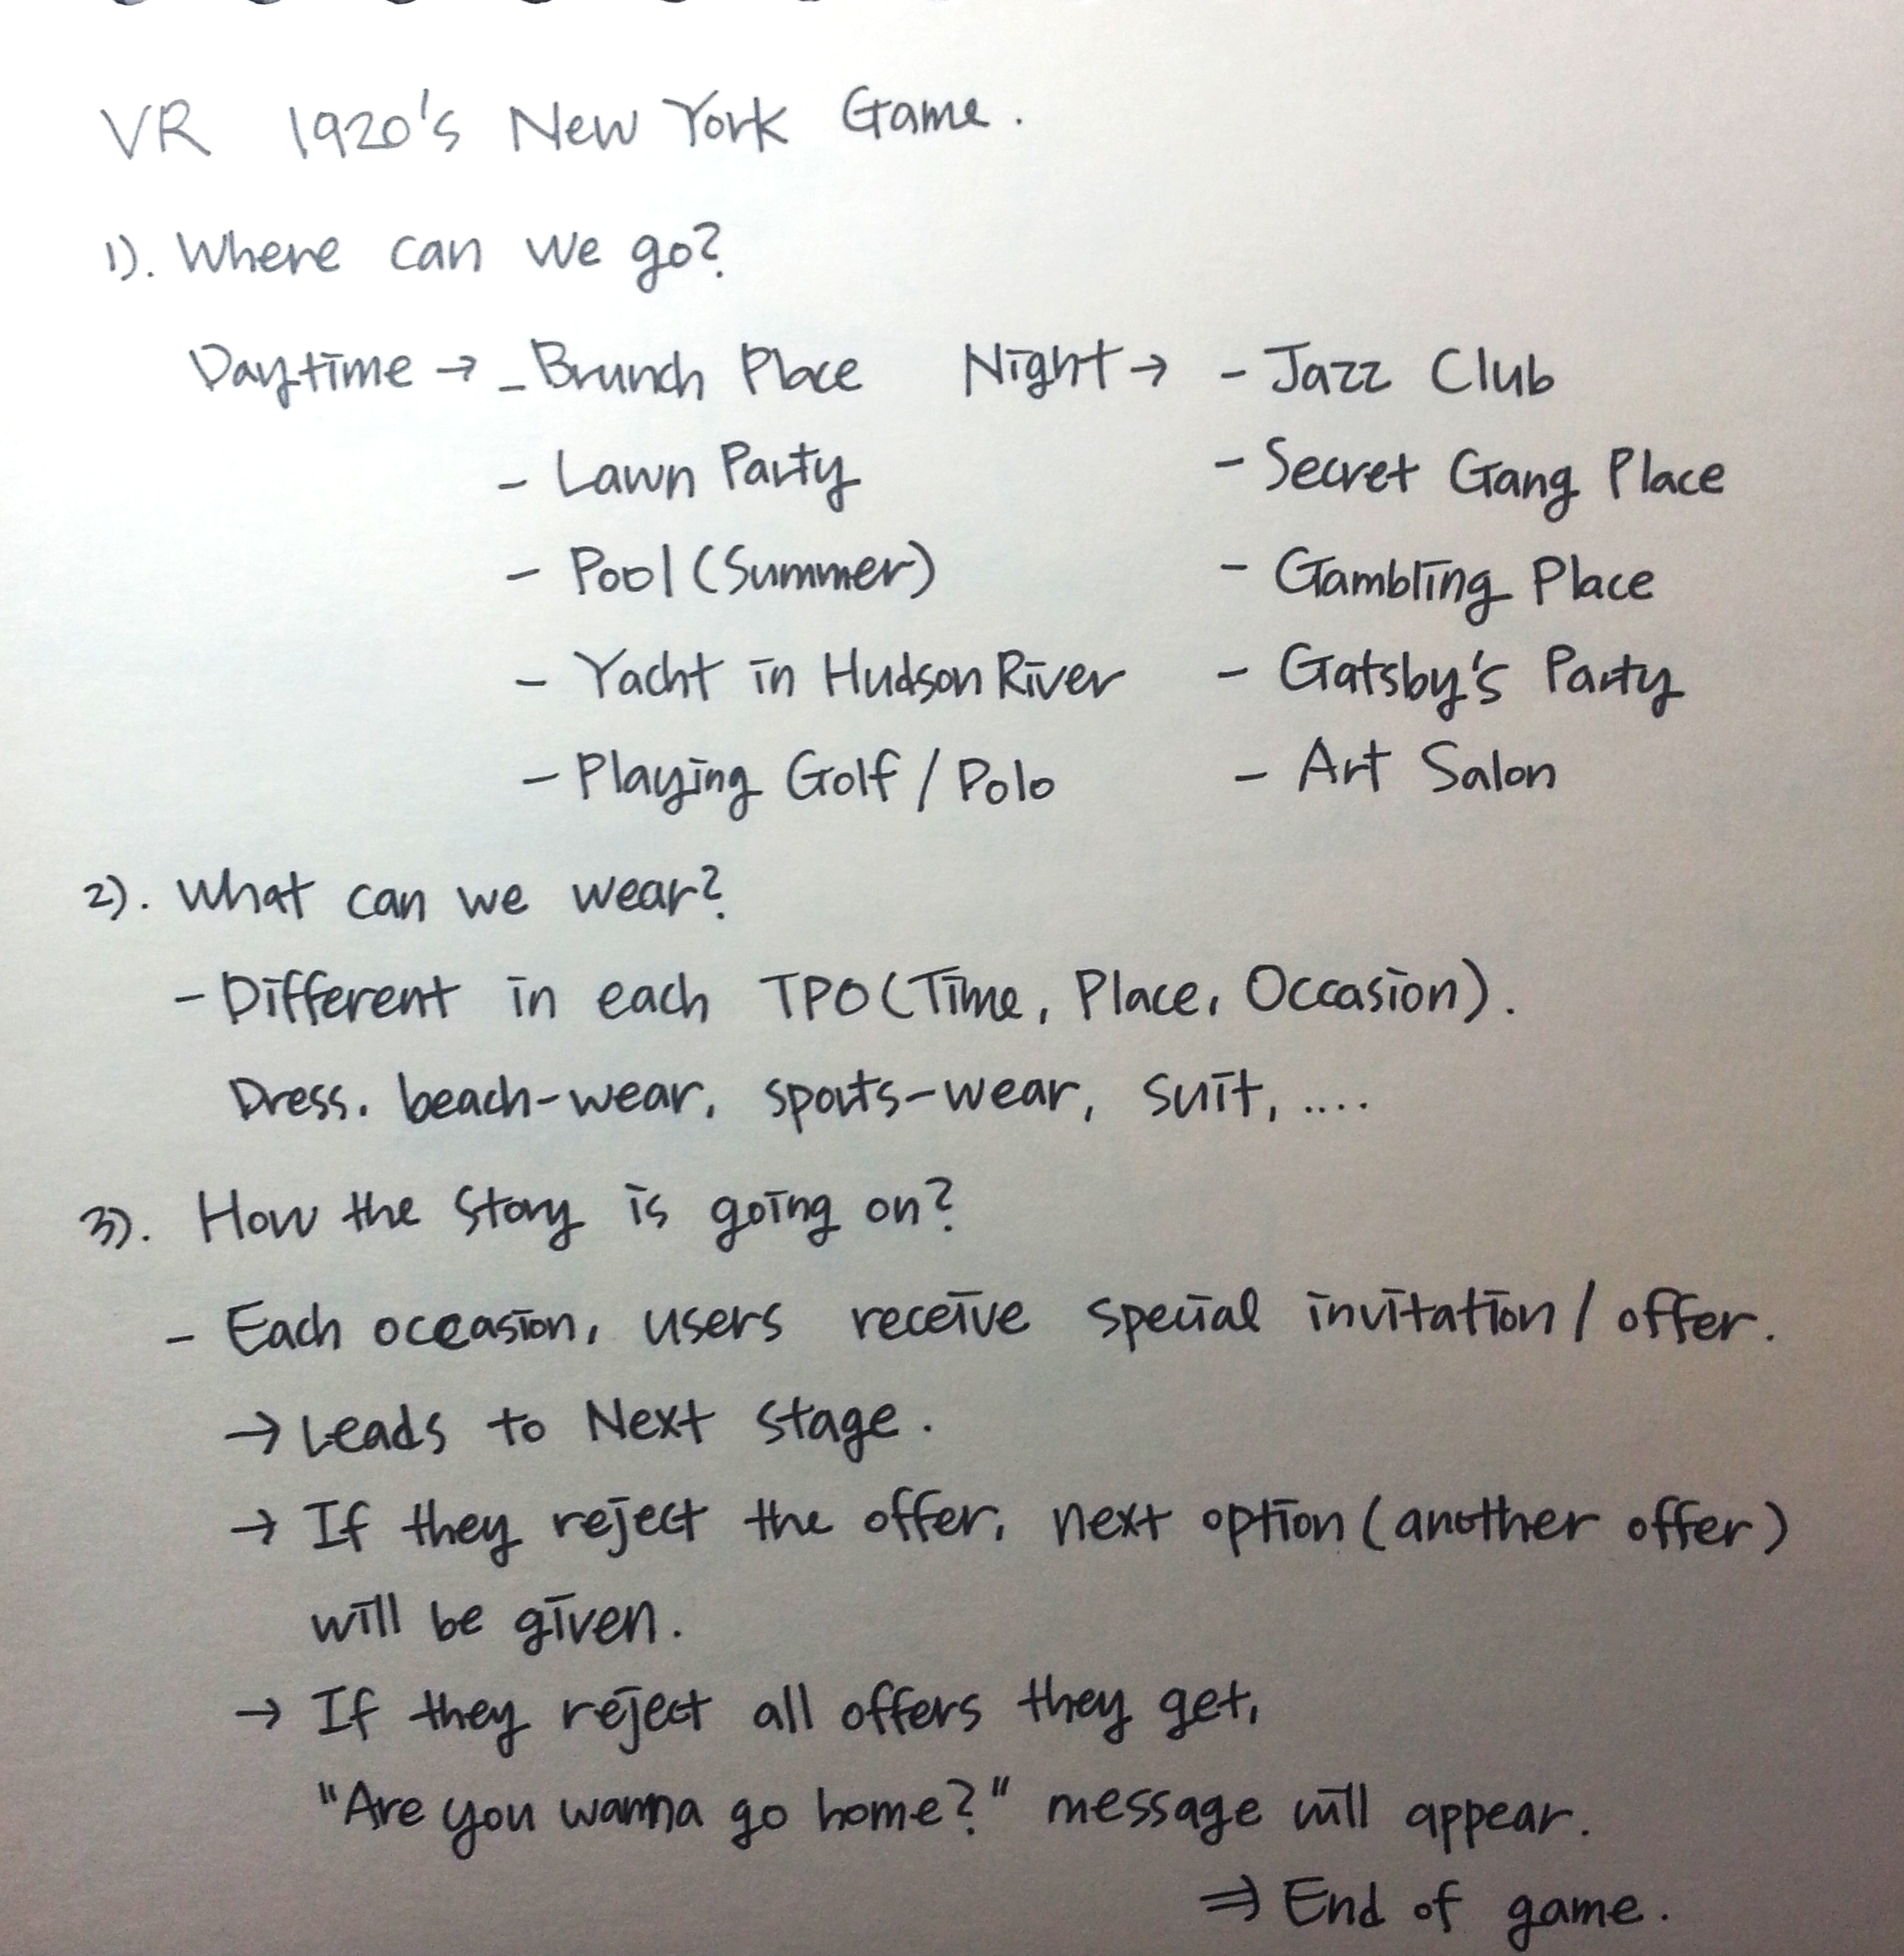 VR 1920's New York Game.
1). Where can we go?
Daytime → - Brunch Place Night → - Jazz Club
- Lawn Party - Secret Gang Place
- Pool (Summer) - Gambling Place
- Yacht in Hudson River - Gatsby's Party
- Playing Golf / Polo - Art Salon
2). What can we wear?
- Different in each TPO (Time, Place, Occasion).
Dress, beach-wear, sports-wear, suit, ....
3). How the story is going on?
- Each occasion, users receive special invitation / offer.
→ Leads to Next stage.
→ If they reject the offer, next option (another offer)
will be given.
→ If they reject all offers they get,
"Are you wanna go home?" message will appear.
⇒ End of game.